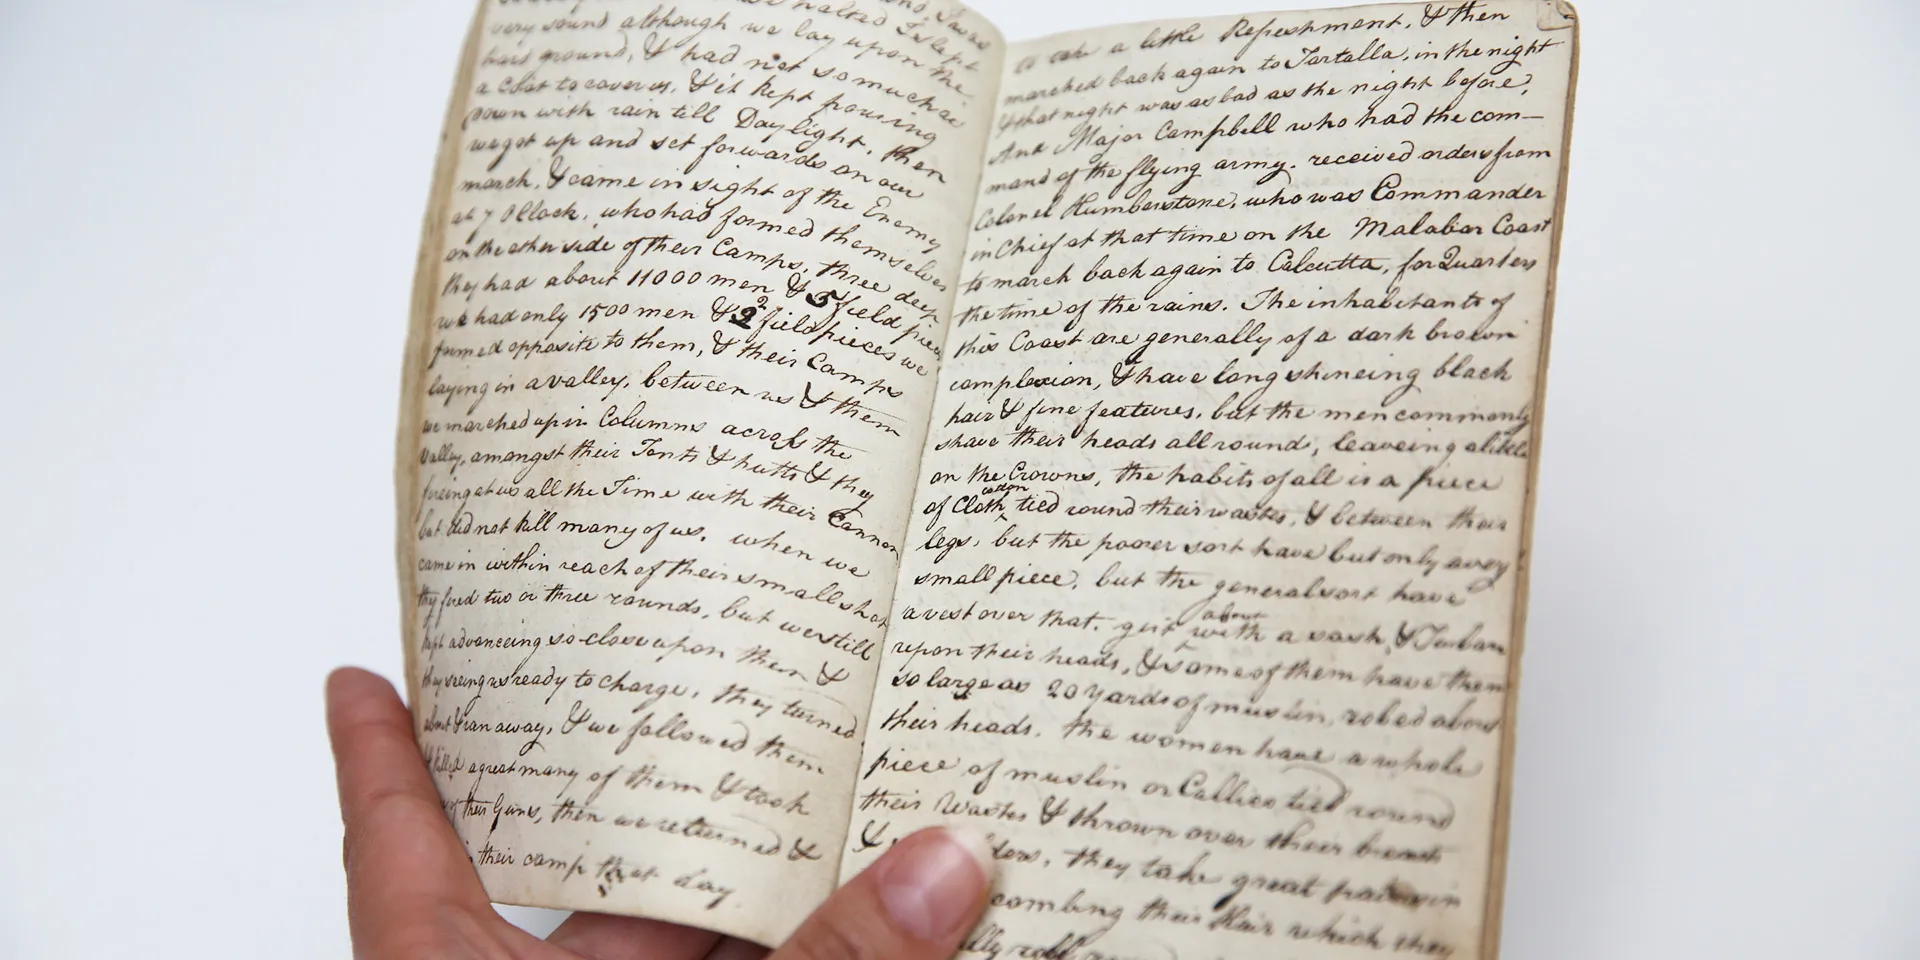 halted I slept
very sound although we lay upon the
bare ground, & had not so much as
a Coat to cover us, & it kept pouring
down with rain till Daylight, then
we got up and set forwards on our
march, & came in sight of the Enemy
at 7 OClock, who had formed themselves
on the other side of their Camps, three deep
they had about 11000 men & 5 field pieces
we had only 1500 men & 2 field pieces we
formed opposite to them, & their Camps
laying in a valley, between us & them
we marched up in Columns across the
Valley, amongst their Tents & hutts & they
fireing at us all the Time with their Cannon
but did not kill many of us, when we
came in within reach of their small shot
they fired two or three rounds, but we still
kept advanceing so close upon them &
they seeing us ready to charge, they turned
about & ran away, & we followed them
& killed a great many of them & took
their Guns, then we returned &
their camp that day
to take a little Refreshment, & then
marched back again to Tortalla, in the night
& that night was as bad as the night before,
And Major Campbell who had the com-
mand of the flying army, received orders from
Colonel Humberstone, who was Commander
in Chief at that time on the Malabar Coast
to march back again to Calcutta, for Quarters
the time of the rains. The inhabitants of
this Coast are generally of a dark brown
complexion, & have long shineing black
hair & fine features, but the men commonly
shave their heads all round, leaveing a little
on the Crowns, the habits of all is a piece
of cotton Cloth tied round their wastes, & between their
legs, but the poorer sort have but only a very
small piece, but the general sort have
a vest over that, girt about with a sash, & Turban
upon their heads, & some of them have them
so large as 20 yards of muslin, robed about
their heads. the women have a whole
piece of muslin or Callico tied round
their Wastes & thrown over their breasts
& they take great pains in
combing their Hair which they